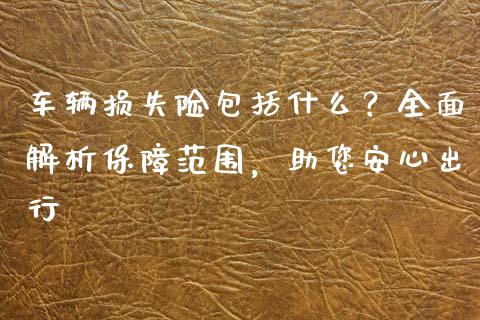 车辆损失险包括什么？全面
解析保障范围，助您安心出
行